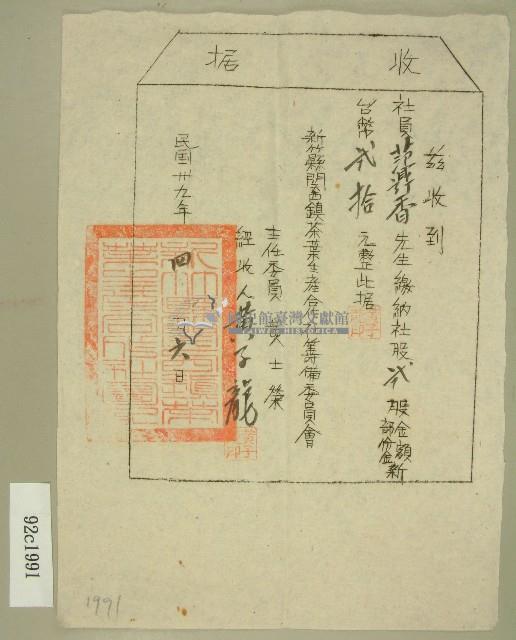 收据
茲收到
社員 香先生繳納社股弍股金額新
部份金
台幣弍拾元整此据
新竹縣關西鎮茶葉生產合作社籌備委員會
主任委員 士榮
經收人黃子龍
民國卅九年四月六日
國史館臺灣文獻館
TAIWAN HISTORICA
92c1991
1991